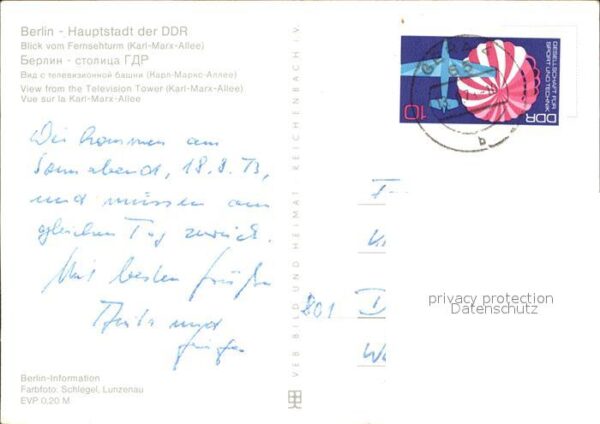 Berlin - Hauptstadt der DDR
Blick vom Fernsehturm (Karl-Marx-Allee)
Берлин - столица ГДР
Вид с телевизионной башни (Карл-Маркс-Аллее)
View from the Television Tower (Karl-Marx-Allee)
Vue sur la Karl-Marx-Allee
kommen am
Sonnabend, 18.8.73,
und müssen am
gleichen Tag zurück.
Mit besten Grüßen
und
Berlin-Information
Farbfoto: Schlegel, Lunzenau
EVP 0,20 M
VEB BILD UND HEIMAT REICHENBACH i. V.
GESELLSCHAFT FÜR
SPORT UND TECHNIK
DDR
10
b
801
privacy protection
Datenschutz